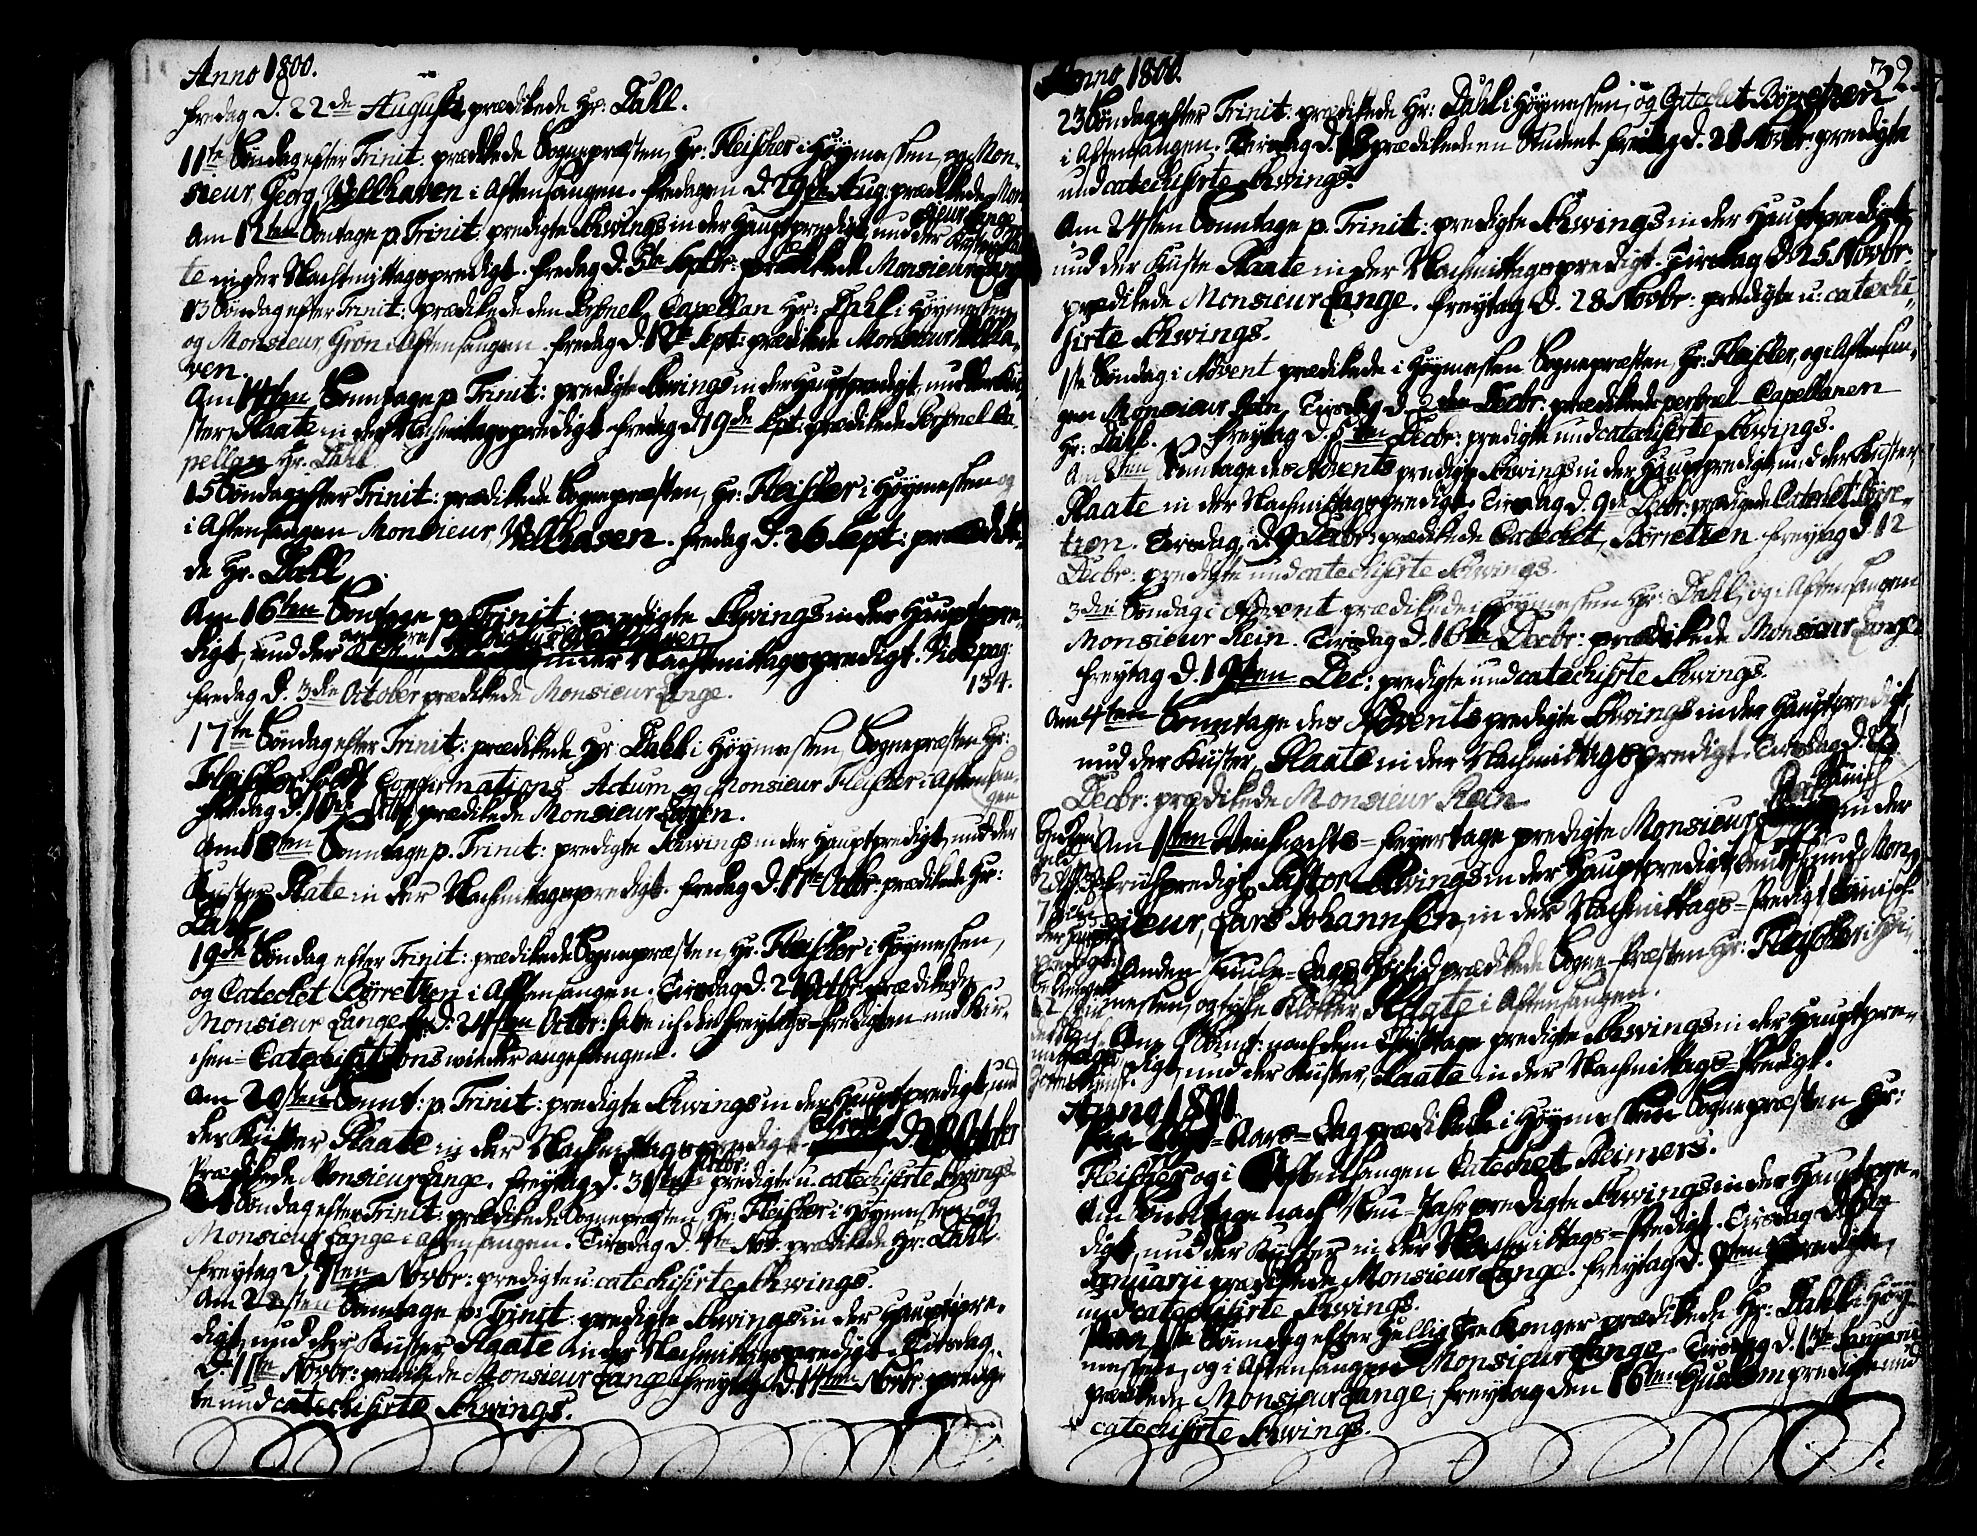 Anno 1800.
Fredag d. 22de August prædikede Hr: Dahl.
11te Søndag efter Trinit: prædikede Sognepræsten, Hr: Fleischer i Høymessen, og Mon-
sieur, Georg, Wellhaven i Aftensangen. Fredagen d. 29de Aug: prædikede Mon-
sieur Lange
Am 12ten Sontage p. Trinit: predigte Schwings in der Hauptpredigt, und der Küster Plaa-
te in der Nachmittagspredigt. Fredag d. 5te Septbr: prædikede Monsieur Lange
13 Søndag efter Trinit: prædikede den Personel Capellan Hr: Dahl i Høymessen,
og Monsieur, Grøn i Aftensangen. Fredag d. 12te Sept: prædikede Monsieur Wellha-
ven.
Am 14ten Sonntage p. Trinit: predigte Schwings in der Hauptpredigt, und der Kü-
ster, Plaate in der Nachmittagspredigt. Fredag d. 19de Sept: prædikede Personel Ca-
pellan Hr. Dahl
15 Søndag efter Trinit: prædikede Sognepræsten, Hr: Fleischer i Høymessen og
i Aftensangen Monsieur, Wellhaven. Fredag d. 26 Sept: prædike-
de Hr. Dahl.
Am 16ten Sontage p. Trinit: predigte Schwings in der Hauptpre-
digt, und der in der Nachmittagspredigt. Vide pag:
134.
Fredag d. 3die October prædikede Monsieur Lange.
17te Søndag efter Trinit: prædikede Hr Dahl i Høymessen, Sognepræsten Hr:
Fleischer holdt Confirmations Actum og Monsieur Fleischer i Aftensan-
gen
Fredag d. 10de prædikede Monsieur
Am 18ten Sonntage p. Trinit: predigte Schwings in der Hauptpredigt, und der
Küster Plate in der Nachmittagspredigt. Fredag d. 17te Octbr: prædikede Hr:
Dahl.
19de Søndag efter Trinit: prædikede Sognepræsten, Hr. Fleischer i Høymessen,
og Catechet Børretzen i Aftensangen. Tirsdag d. 21 Octbr: prædikede
Monsieur Lange. d: 24sten Octbr: habe ich die Freytags-Predigten und Kir-
chen-Catechisations wieder angefangen.
Am 20sten Sonnt: p. Trinit: predigte Schwings in der Hauptpredigt, und
der Küster Plaate in der Nachmittagspredigt. Tirsdag d. 28 October
Prædikede Monsieur Lange. Freytag d. 31sten Octbr: predigte u. catechisirte Schwings
21 Søndag efter Trinit: prædikede Sognepræsten, Hr: Fleischer i Høymessen, og
Monsieur Lange i Aftensangen. Tirsdag d. 4te Nov: prædikede Hr: Dahl
Freytag d. 7ten Novbr: predigte u: catechisirte Schwings.
Am 22sten Sonntage p. Trinit: predigte Schwings in der Hauptpre-
digt, und der Küster, Plaate in der Nachmittagspredigt. Tirsdag
d. 11te Novbr: prædikede Monsieur Lange Freytag d. 14ten Novbr: predig-
te und catechisirte Schwings.
Anno 1800.
23 Søndag efter Trinit: prædikede Hr: Dahl i Høymessen, og Catechet Børretzen
i Aftensangen. Tirsdag d. 18 prædikede en Student. Freitag d. 21 Novbr: predigte
und catechisirte Schwings.
Am 24sten Sonntage p. Trinit: predigte Schwings in der Hauptpredigt,
und der Küste Plaate in der Nachmittagspredigt. Tirsdag d. 25 Novbr:
prædikede Monsieur Lange. Freytag d. 28 Novbr: predigte u: catechi-
sirte Schwings.
1ste Søndag i Advent prædikede i Høymessen Sognepræsten, Hr: Fleischer, og i Aftensan-
gen Monsieur Rein, Tirsdag d. 2den Decbr: prædikede personel Capellanen
Hr: Dahl. Freytag d. 5ten Decbr: predigte und catechisirte Schwings.
Am 2ten Sontage des Advents predigte Schwings in der Hauptpredigt, und der Küster,
Plaate in der Nachmittagspredigt. Tirsdag d. 9de Decbr: prædikede Catechet Børre-
tzen. Tirsdag, d. 9 Decbr: prædikede Catechet, Børretzen. Freytag d. 12
Decbr: predigte und catechisirte Schwings.
3die Søndag i Advent prædikede i Høymessen Hr: Dahl, og i Aftensangen
Monsieur Rein. Tirsdag d. 16te Decbr: prædikede Monsieur Lange
Freytag d. 19ten Dec: predigte und catechisirte Schwings.
Am 4ten Sonntage des Advents predigte Schwings in der Hauptpredigt,
und der Küster, Plaate in der Nachmittagspredigt. Tirsdag d. 23
Decbr: prædikede Monsieur Rein
Am 1sten Weihnachts-Feyertage predigte Monsieur in der
Frühpredigt, Pastor Schwings in der Hauptpredigt deutsch und Mon-
sieur, Lars Johannsen, in der Nachmittags-Predigt Dänisch.
Anden Juule-Dags Høitid prædikede Sogne-Præsten Hr: Fleischer i Høi-
messen, og tydske Klokker, Plaate i Aftensangen.
Am Sonnt: nach dem Christtage predigte Schwings in der Hauptpre-
digt, und der Küster, Plaate in der Nachmittags-Predigt.
Anno 1801.
Paa Nyt-Aars-Dag prædikede i Høymessen Sognepræsten Hr:
Fleischer, og i Aftensangen Catechet Reimers.
Am Sontage nach Neu-Jahr predigte Schwings in der Hauptpre-
digt, und der Küster in der Nachmittags-Predigt. Tirsdag
Januarii prædikede Monsieur Lange. Freytag d. 9ten predigte,
und catechisirte Schwings.
Paa 1ste Sønndag efter Hellig Tre Konger prædikede Hr: Dahl i Høy-
messen, og i Aftensangen Monsieur Lange. Tirsdag d. 13te Januarii
prædikede, Monsieur Lange, Freytag den 16ten predigte und
catechisirte Schwings.